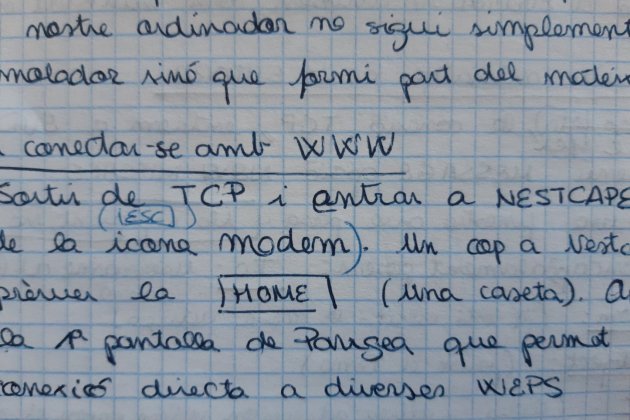 nostre ordinador no sigui simplement
molador sinó que formi part del mateix
conectar-se amb WWW
Sortir de TCP i entrar a NESTCAPE
(ESC)
de la icona modem). Un cop a Nestc
prèmer la HOME (una caseta). A
la 1ª pantalla de Pangea que permet
conexió directa a diverses WEPS